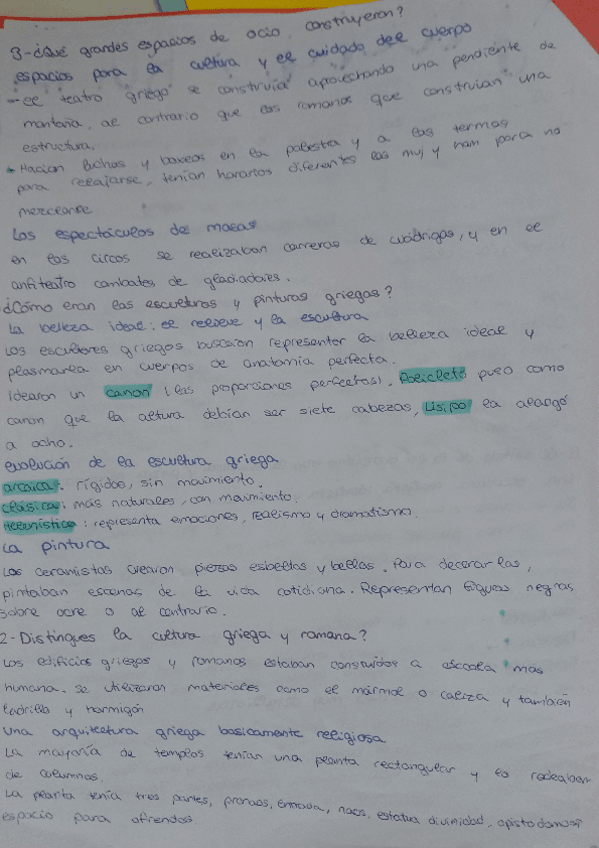 3-¿Qué grandes espacios de ocio construyeron?
espacios para la cultura y el cuidado del cuerpo
- el teatro griego se construía aprovechando una pendiente de
montaña, al contrario que los romanos que construían una
estructura.
Hacían luchas y boxeos en la palestra y a las termas
para relajarse, tenían horarios diferentes las muj y ham para no
mezclarse
Los espectáculos de masas
en los circos se realizaban carreras de cuádrigas, y en el
anfiteatro combates de gladiadores.
¿Cómo eran las esculturas y pinturas griegas?
La belleza ideal: el relieve y la escultura
Los escultores griegos buscaban representar la belleza ideal y
plasmarla en cuerpos de anatomía perfecta.
Idearon un canon (las proporciones perfectas), Policleto puso como
canon que la altura debían ser siete cabezas, Lisipo la alargó
a ocho.
evolución de la escultura griega
arcaica: rígidos, sin movimiento.
clásica: más naturales, con movimiento.
Helenística: representa emociones, realismo y dramatismo.
La pintura
Los ceramistas crearon piezas esbeltas y bellas. Para decorarlas,
pintaban escenas de la vida cotidiana. Representan figuras negras
sobre ocre o al contrario.
2-Distingues la cultura griega y romana?
Los edificios griegos y romanos estaban construidos a escala más
humana. se utilizaron materiales como el mármol o caliza y también
ladrillo y hormigón
Una arquitectura griega basicamente religiosa
La mayoría de templos tenían una planta rectangular y lo rodeaban
de columnas.
La planta tenía tres partes, pronaos, entrada, naos, estatua divinidad, opistodomos
espacio para ofrendas